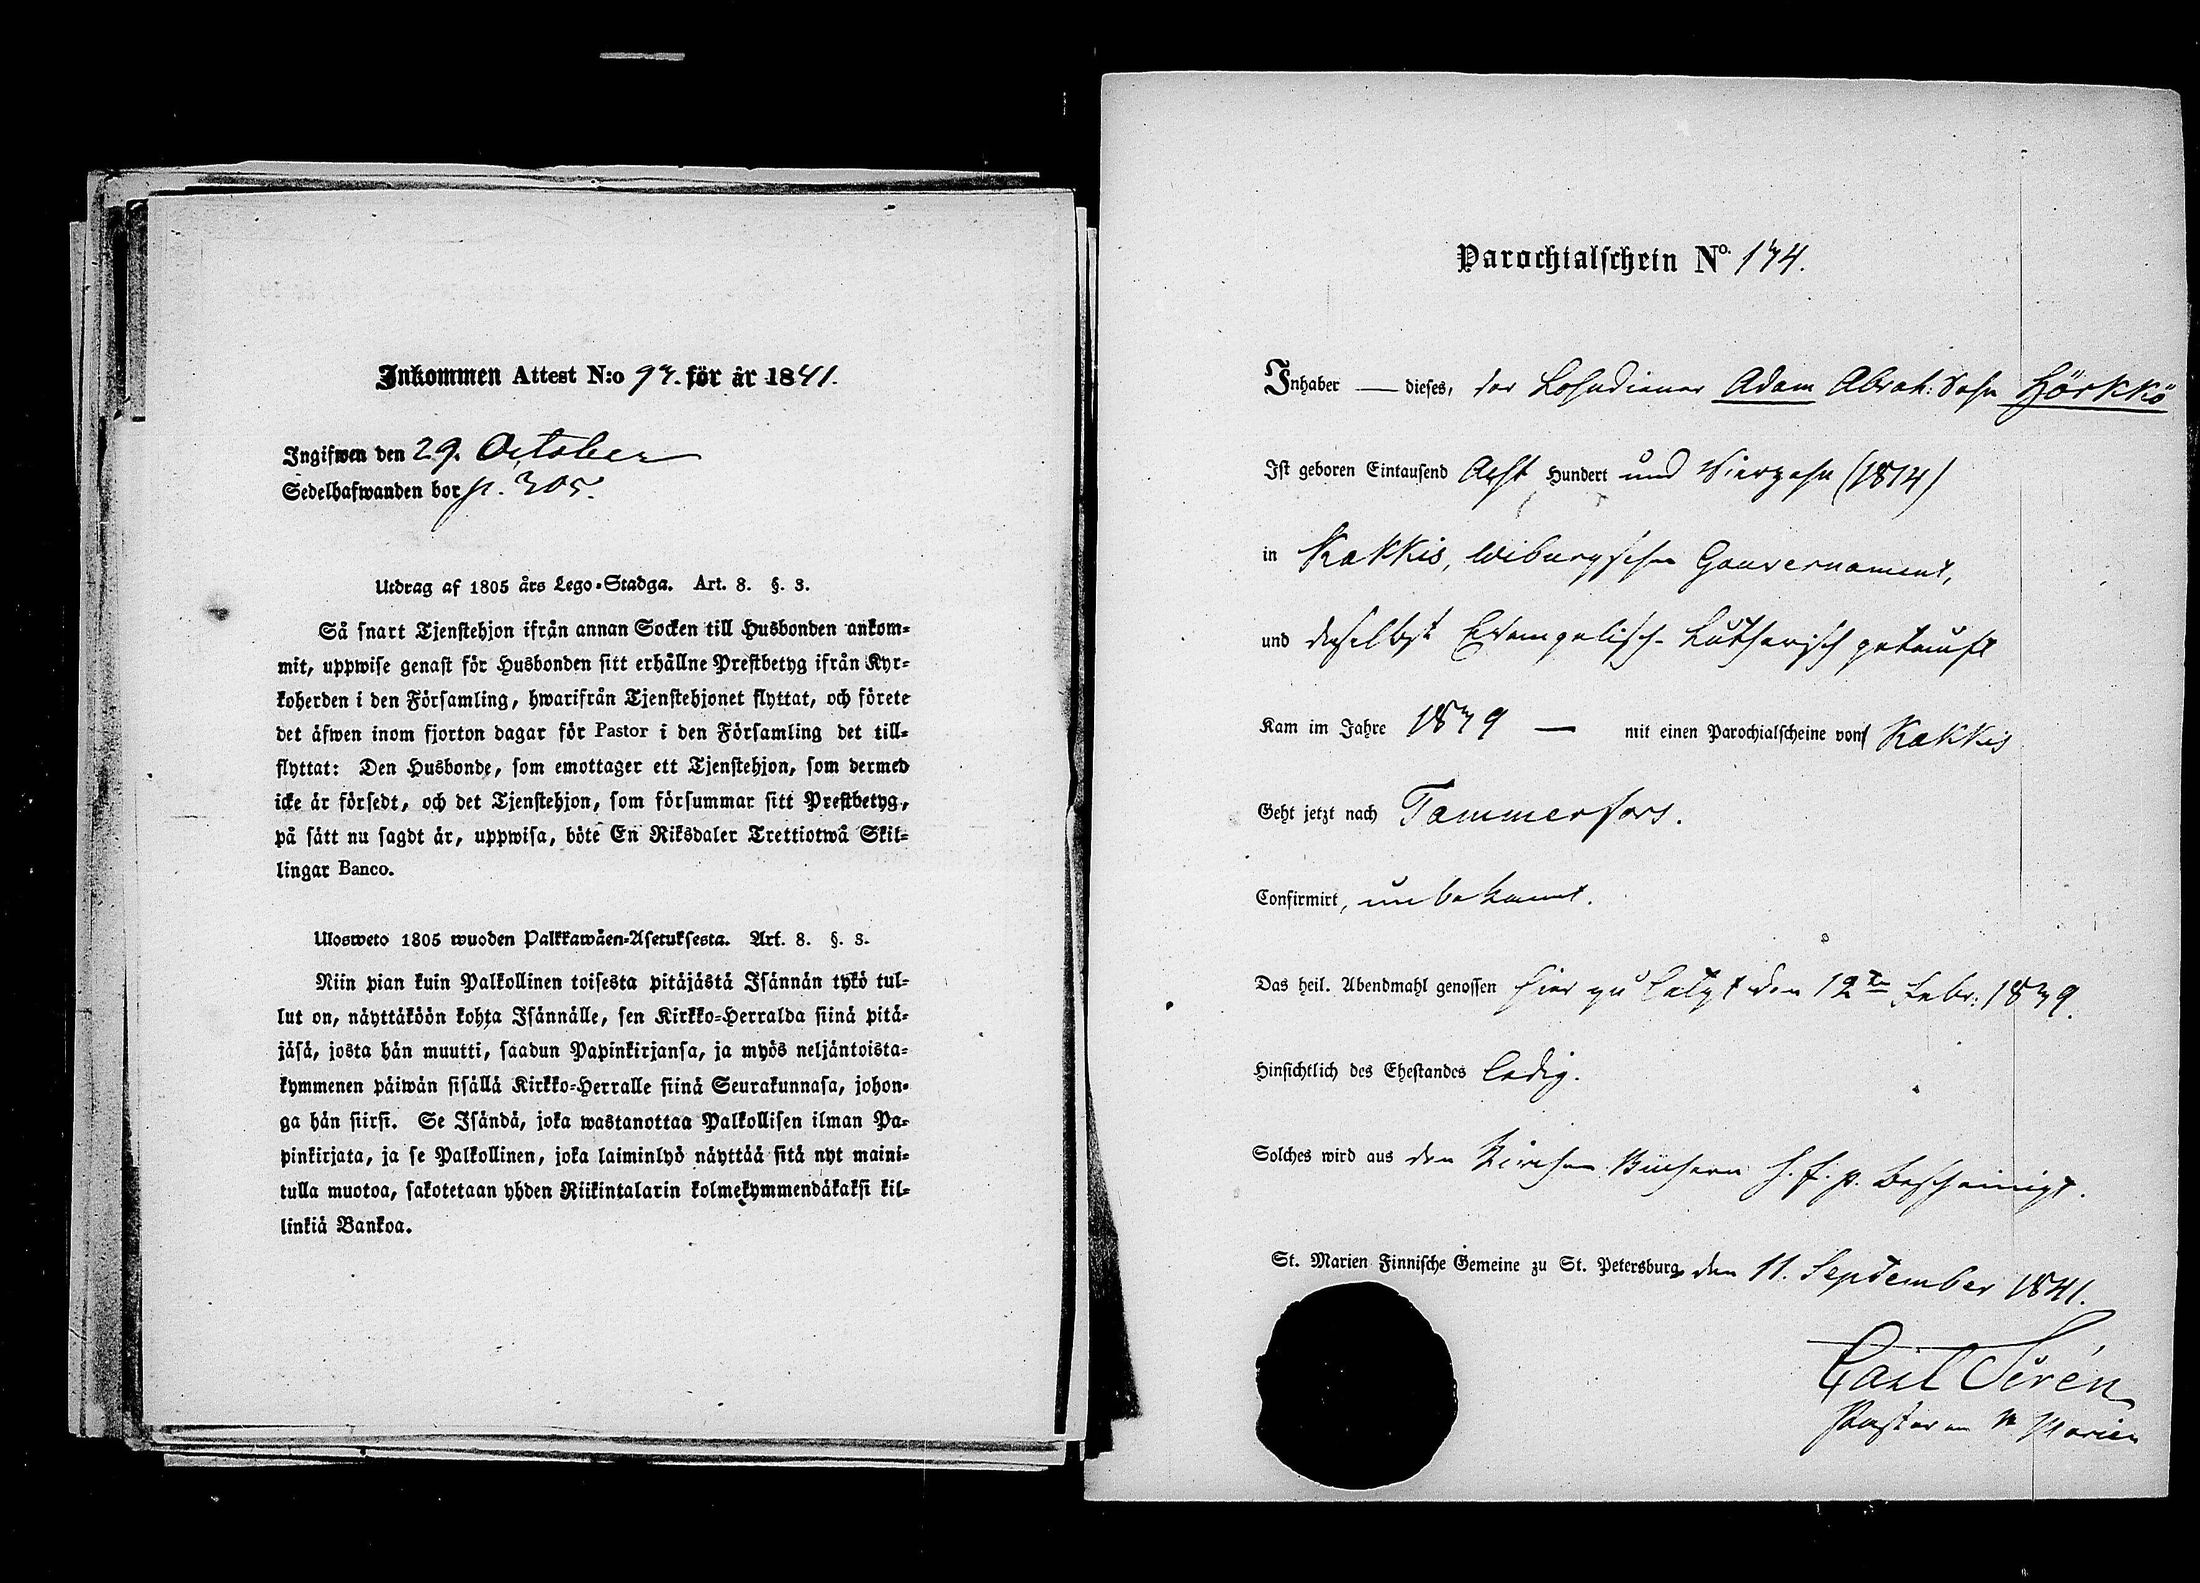 Inkommen Attest N:o 97. för år 1841.
Ingifwen den 29. October
Sedelhafwanden bor p. 305.
Utdrag af 1805 års Lego-Stadga. Art. 8. §. 3.
Så snart Tjenstehjon ifrån annan Socken till Husbonden ankom-
mit, uppwise genast för Husbonden sitt erhållne Prestbetyg ifrån Kyr-
koherden i den Församling, hwarifrån Tjenstehjonet flyttat, och förete
det äfwen inom fjorton dagar för Pastor i den Församling det till-
flyttat: Den Husbonde, som emottager ett Tjenstehjon, som dermed
icke är försedt, och det Tjenstehjon, som försummar sitt Prestbetyg,
på sätt nu sagdt är, uppwisa, böte En Riksdaler Trettiotwå Skil-
lingar Banco.
Ulosweto 1805 wuoden Palkkawäen-Asetuksesta. Art. 8. §. 3.
Niin pian kuin Palkollinen toisesta pitäjästä Isännän tykö tul-
lut on, näyttäköön kohta Isännälle, sen Kirkko-Herralda siinä pitä-
jäsä, josta hän muutti, saadun Papinkirjansa, ja myös neljäntoista-
kymmenen päiwän sisällä Kirkko-Herralle siinä Seurakunnasa, johon-
ga hän siirsi. Se Isändä, joka wastanottaa Palkollisen ilman Pa-
pinkirjata, ja se Palkollinen, joka laiminlyö näyttää sitä nyt maini-
tulla muotoa, sakotetaan yhden Riikintalarin kolmekymmendäkaksi kil-
linkiä Bankoa.
Parochialschein No. 174.
Inhaber — dieses, der Lohndiener Adam Abrah: Sohn Hörkkö
Ist geboren Eintausend Acht Hundert und Vierzehn (1814)
in Räkkis, Wiburgschen Gouvernement,
und daselbst Evangelisch-Lutherisch getauft
Kam im Jahre 1839 — mit einen Parochialscheine von Räkkis
Geht jetzt nach Tammerfors.
Confirmirt, unbekannt.
Das heil. Abendmahl genossen hier zu letzt den 12ten Febr: 1839.
Hinsichtlich des Ehestandes ledig.
Solches wird aus den Kirchen Büchern h. f. p. bescheinigt.
St. Marien Finnische Gemeine zu St. Petersburg, den 11. September 1841.
Carl Sirén
Pastor an St Marien